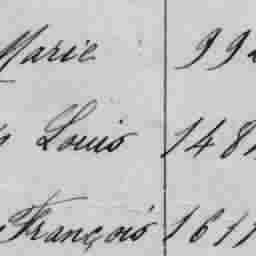 Marie 992
Louis 1481
François 1611